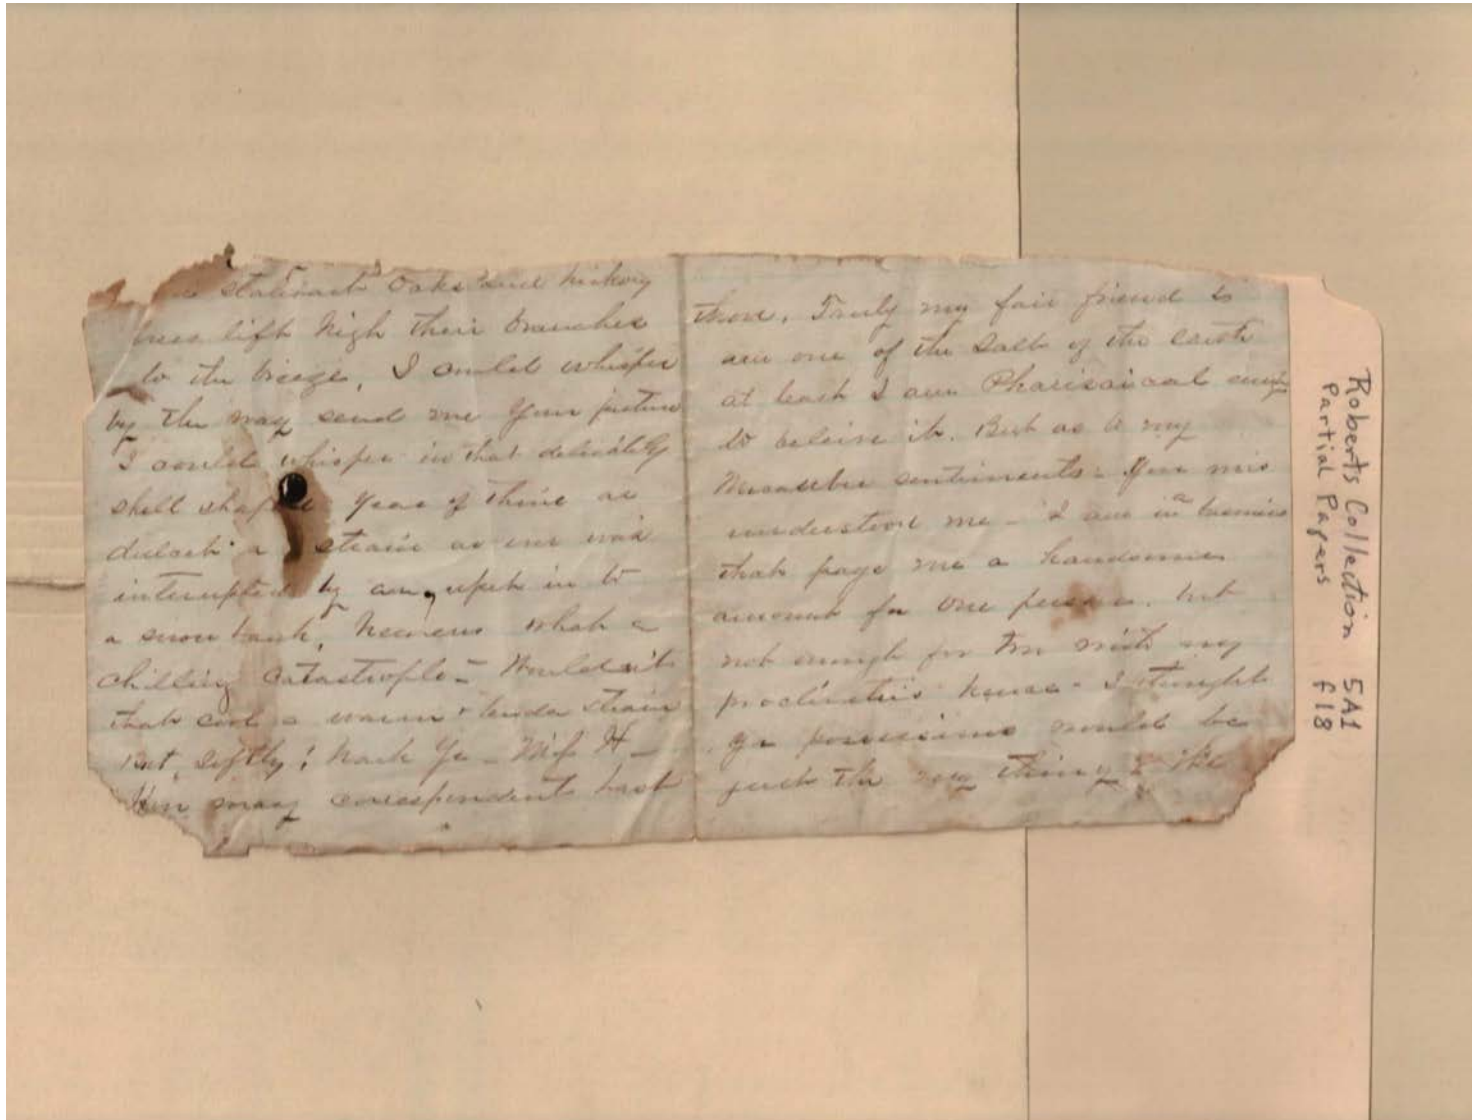 stalwart Oaks and hickory
trees lift high their branches
to the breeze, I could whisper
by the way send me your picture
I could whisper in that delicately
shell shaped year of thine as
a strain as ever was
interrupted by an upset in to
a snow bank, heavens what a
chilling catastrophe - Wouldn't
that cool a warm & tender strain
But, softly; hark ye - Miss H -
many correspondents hast
thou. Truly my fair friend
are one of the salt of the earth
at least I am Pharisaical enough
to believe it. But as to my
sentiments - You mis
understood me - I am in a business
that pays me a handsome
amount for one person, but
not enough for two with my
hence - I thought
yr possessions would be
just the very thing
Roberts Collection 5A1
Partial Papers f18